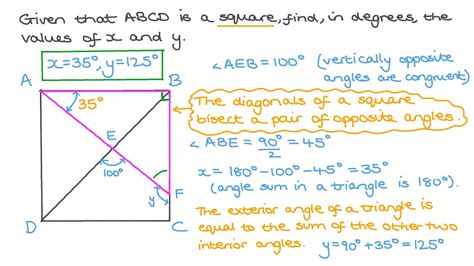 Given that ABCD is a square, find, in degrees, the
values of x and y.
x=35°, y=125°
∠AEB = 100° (vertically opposite
angles are congruent)
A
B
35°
The diagonals of a square
bisect a pair of opposite angles.
E
∠ABE = 90°/2 = 45°
100°
x = 180° - 100° - 45° = 35°
(angle sum in a triangle is 180°).
y
F
D
C
The exterior angle of a triangle is
equal to the sum of the other two
interior angles. y = 90° + 35° = 125°